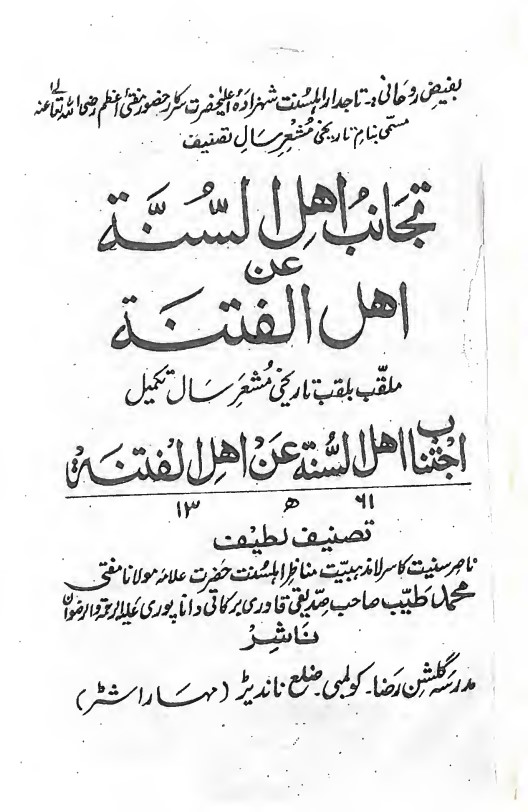 بفیضِ روحانی:۔ تاجدارِ اہلسنت شہزادۂ اعلیٰحضرت سرکار حضور مفتیٔ اعظم رضی اللہ تعالیٰ عنہ
مسمّی بنام تاریخی مُشعرِ سالِ تصنیف
تجانبُ اھلِ السُّنَّة
عن
اھل الفتنَة
ملقّب بلقب تاریخی مُشعرِ سالِ تکمیل
اجتنابُ اھلِ السُّنّةِ عَنْ اھلِ الفتنَةْ
۱۳ ھ ۶۱
تصنیف لطیف
ناصرِ سنیت کاسرِ لامذہبیت مناظرِ اہلسنت حضرت علامہ مولانا مفتی
محمد طیّب صاحب صِدّیقی قادری برکاتی داناپوری علیہ الرحمۃ والرضوان
ناشر
مدرسہ گلشنِ رضا۔ کولمبی۔ ضلع ناندیڑ (مہاراشٹر)